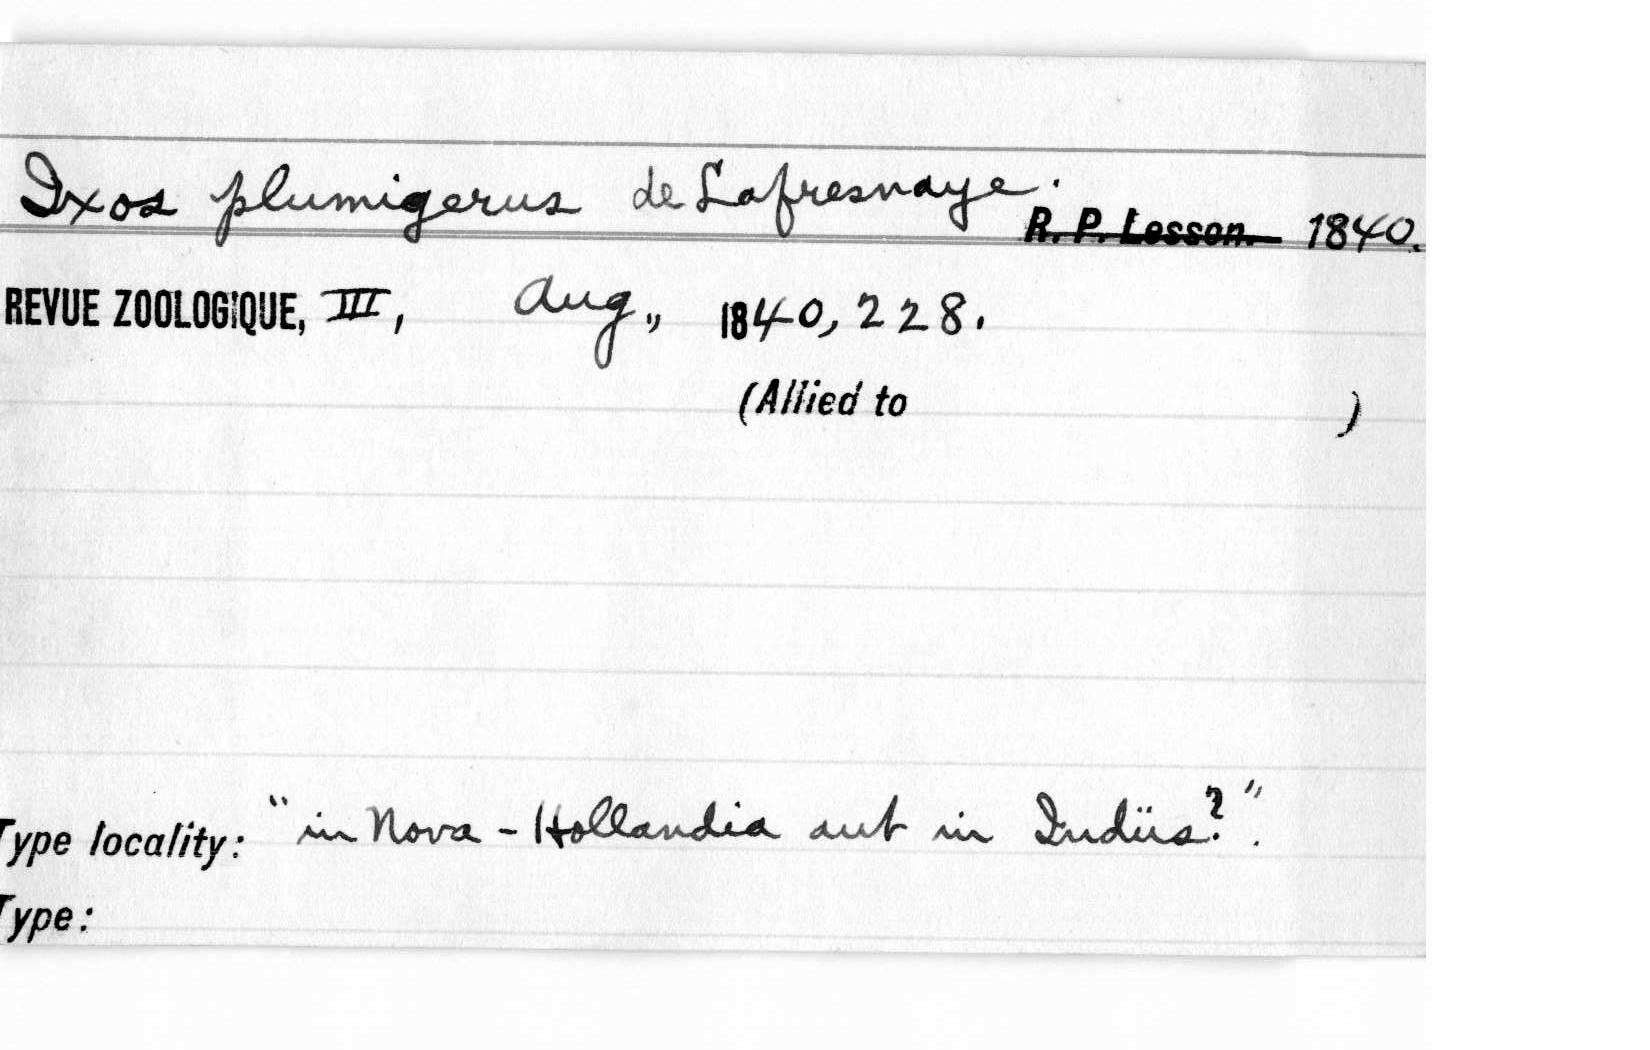 Ixos plumigerus de Lafresnaye.
R. P. Lesson. 1840.
REVUE ZOOLOGIQUE, III, Aug., 1840, 228.
(Allied to )
Type locality: "in Nova-Hollandia aut in Indiis?".
Type: